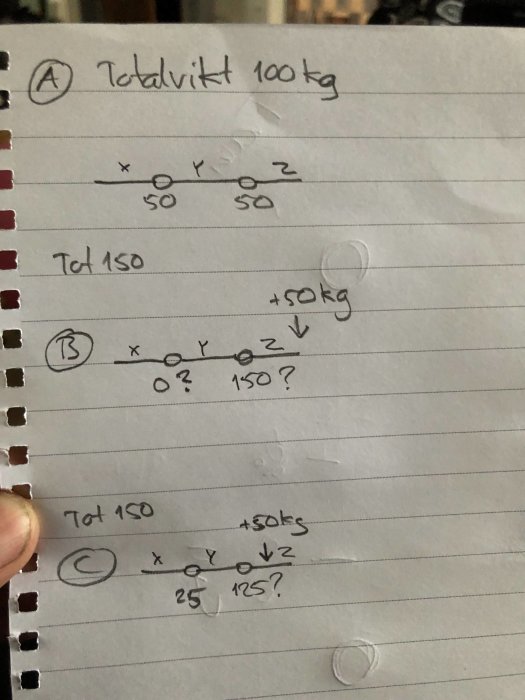 A Totalvikt 100kg
X Y Z
50 50
Tot 150
+50kg
B X Y Z
0? 150?
Tot 150
+50kg
C X Y Z
25 125?